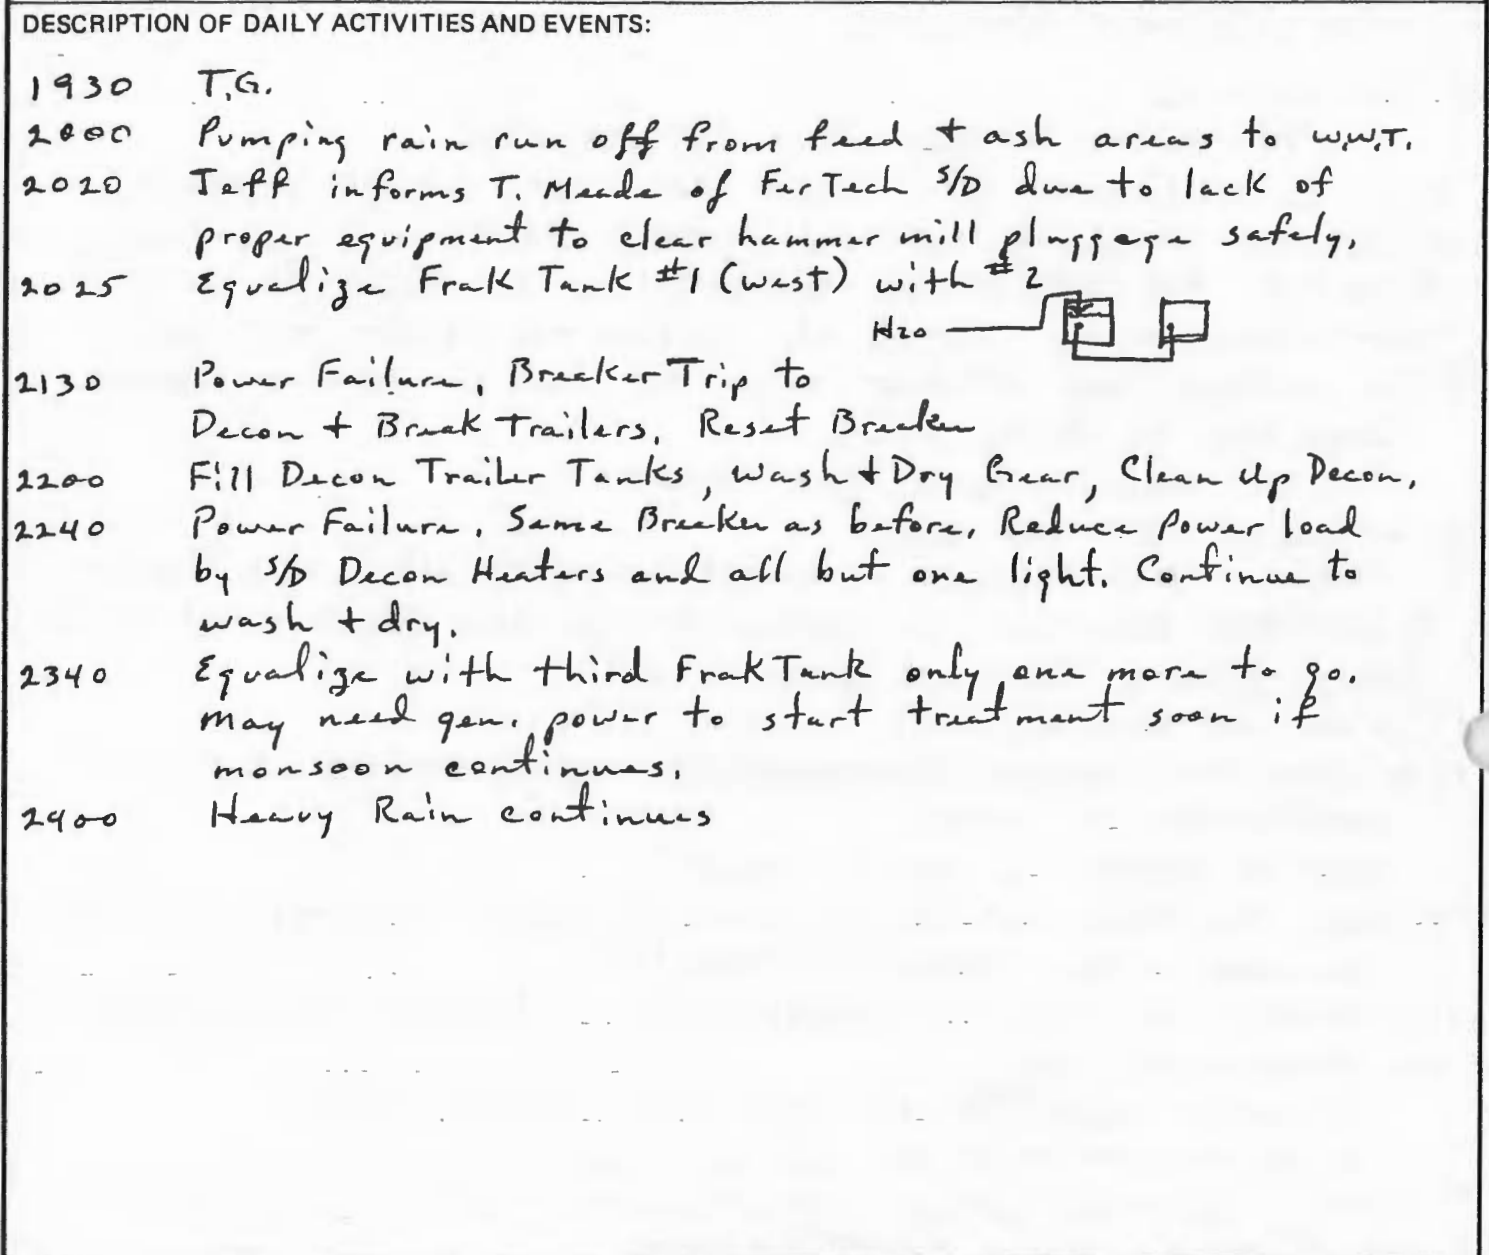 DESCRIPTION OF DAILY ACTIVITIES AND EVENTS:
1930 T.G.
2000 Pumping rain run off from feed + ash areas to W.W.T.
2020 Jeff informs T. Meade of FerTech S/D due to lack of
proper equipment to clear hammer mill pluggage safely.
2025 Equalize Frak Tank #1 (west) with #2
H2O
2130 Power Failure, Breaker Trip to
Decon + Break Trailers, Reset Breaker
2200 Fill Decon Trailer Tanks, Wash + Dry Gear, Clean Up Decon.
2240 Power Failure. Same Breaker as before. Reduce Power load
by S/D Decon Heaters and all but one light. Continue to
wash + dry.
2340 Equalize with third Frak Tank only one more to go.
May need gen. power to start treatment soon if
monsoon continues.
2400 Heavy Rain continues